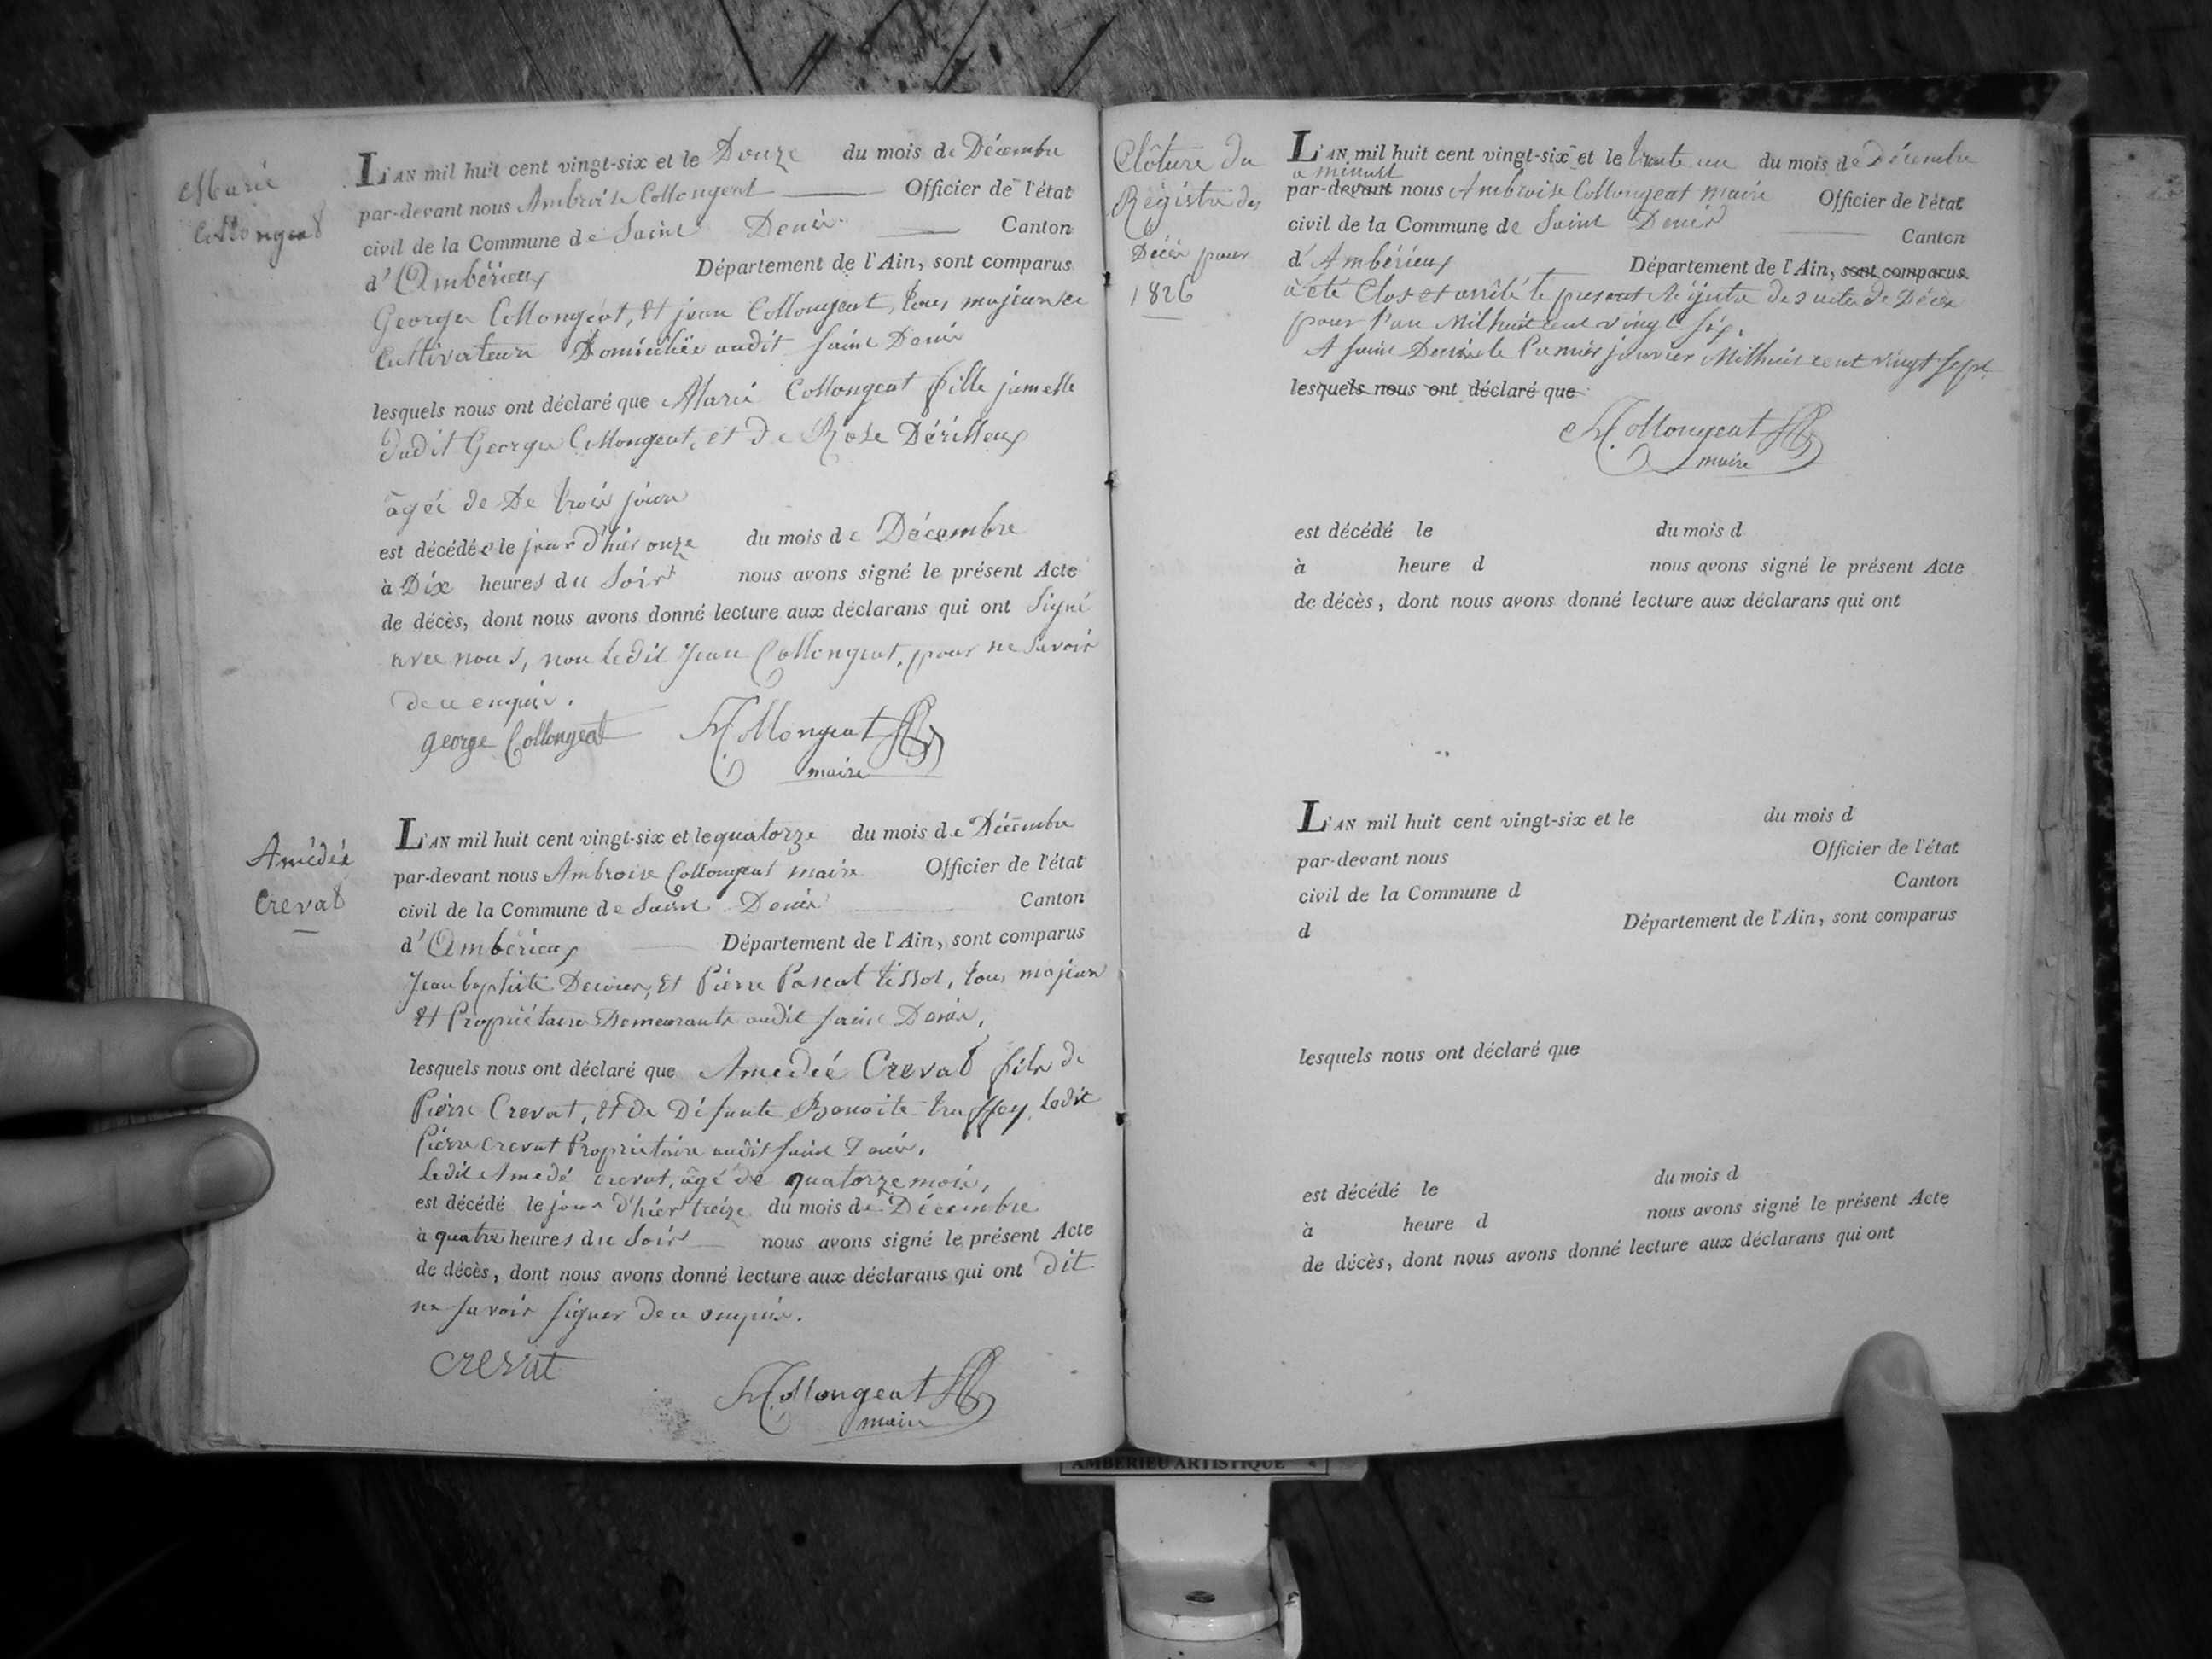 Marie
Collongeat
L'AN mil huit cent vingt-six et le Douze du mois de Décembre
par-devant nous Ambroise Collongeat Officier de l'état
civil de la Commune de Saint Denis Canton
d'Ambérieux Département de l'Ain, sont comparus
George Collongeat, Et jean Collongeat, tous majeurs et
Cultivateurs Domiciliés audit Saint Denis
lesquels nous ont déclaré que Marie Collongeat fille jumelle
dudit George Collongeat, et de Rose Dérilloux
âgée de De trois jours
est décédée le jour d'hier onze du mois de Décembre
à Dix heures du Soir nous avons signé le présent Acte
de décès, dont nous avons donné lecture aux déclarans qui ont Signé
avec nous, non ledit Jean Collongeat, pour ne Savoir
de ce enquis.
george Collongeat Collongeat
maire
Amédée
Crevat
L'AN mil huit cent vingt-six et le quatorze du mois de Décembre
par-devant nous Ambroise Collongeat maire Officier de l'état
civil de la Commune de Saint Denis Canton
d'Ambérieux Département de l'Ain, sont comparus
Jean baptiste, Et Pierre Pascal tissot, tous majeurs
Et Propriétaires Demeurants audit Saint Denis,
lesquels nous ont déclaré que Amédée Crevat fils de
Pierre Crevat, Et de Défunte Benoite truffey, ledit
Pierre Crevat Propriétaire audit Saint Denis,
Ledit Amedé crevat, âgé de quatorze mois,
est décédé le jour d'hier treize du mois de Décembre
à quatre heures du Soir nous avons signé le présent Acte
de décès, dont nous avons donné lecture aux déclarans qui ont dit
ne Savoir signer de ce enquis.
crevat
Collongeat
maire
Clôture du
Régistre des
Décès pour
1826
L'AN mil huit cent vingt-six et le trente un du mois de Décembre
à minuit
par-devant nous Ambroise Collongeat maire Officier de l'état
civil de la Commune de Saint Denis Canton
d'Ambérieux Département de l'Ain, sont comparus
à été Clos et arrêté le présent Régistre des actes de Décès
pour l'an Mil huit cent vingt Six.
A Saint Denis le Premier janvier Mil huit cent vingt Sept
lesquels nous ont déclaré que
Collongeat
maire
est décédé le du mois d
à heure d nous avons signé le présent Acte
de décès, dont nous avons donné lecture aux déclarans qui ont
L'AN mil huit cent vingt-six et le du mois d
par-devant nous Officier de l'état
civil de la Commune d Canton
d Département de l'Ain, sont comparus
lesquels nous ont déclaré que
est décédé le du mois d
à heure d nous avons signé le présent Acte
de décès, dont nous avons donné lecture aux déclarans qui ont
AMBERIEU ARTISTIQUE